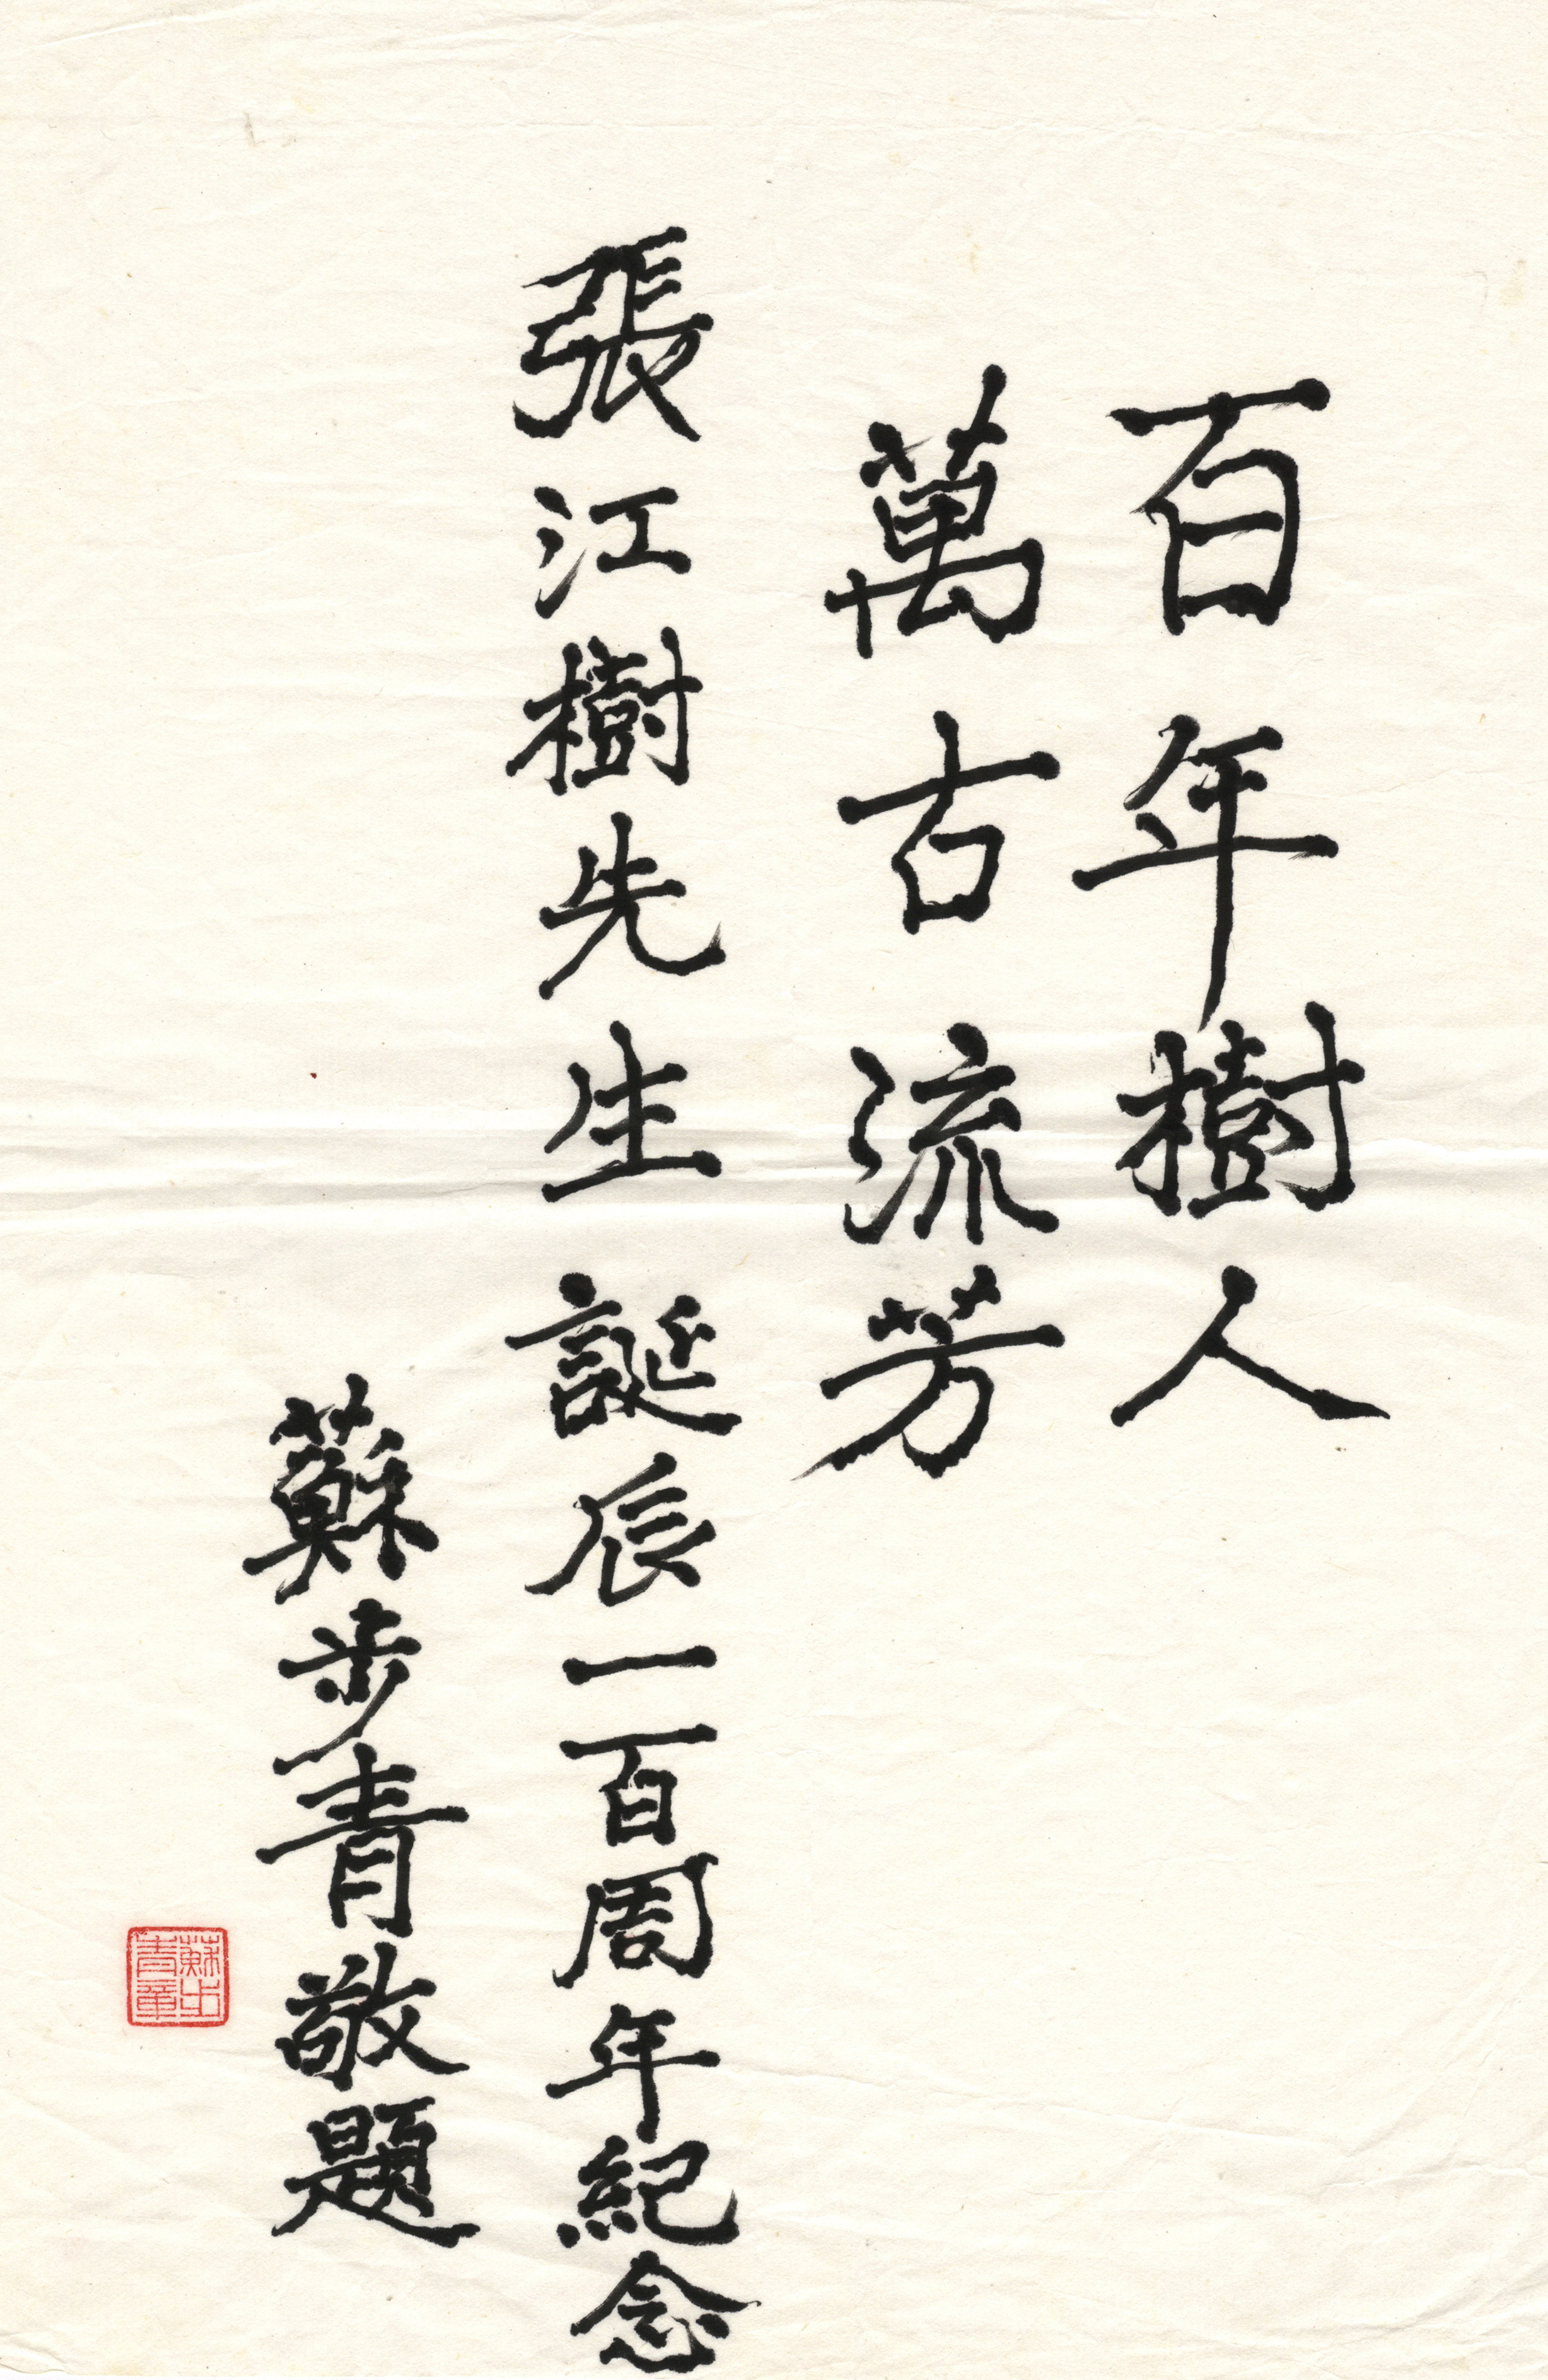 百年樹人
萬古流芳
張江樹先生誕辰一百周年紀念
蘇步青敬題
蘇步
青章